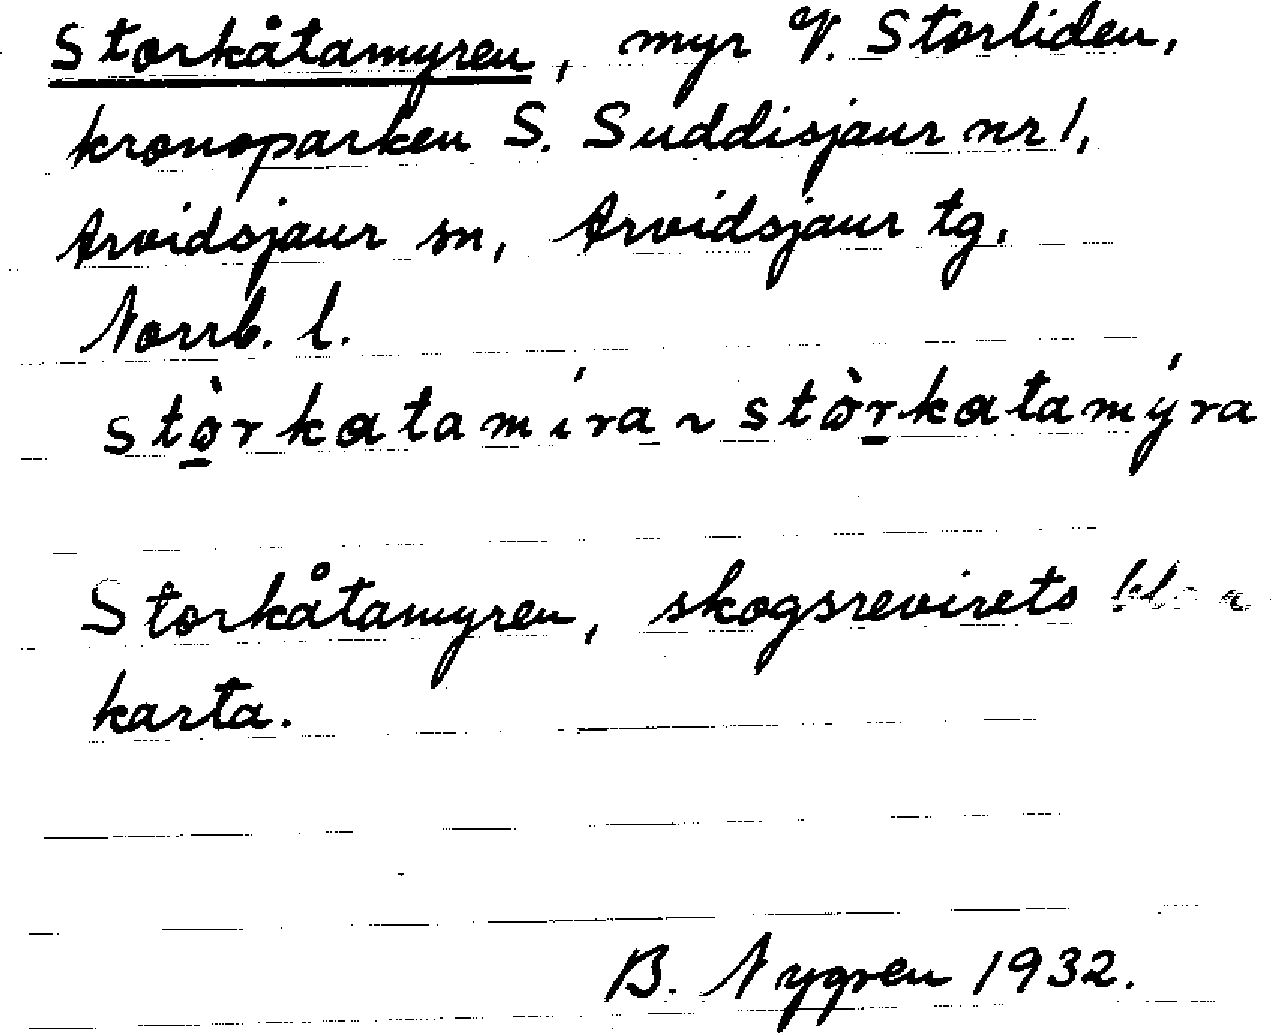 Storkåtamyren, myr V. Storliden,
kronoparken S. Suddisjaur nr 1,
Arvidsjaur sn, Arvidsjaur tg,
Norrb. l.
stò̠rkatamíra ~ stòr̠katamýra
Storkåtamyren, skogsrevirets
karta.
B. Nygren 1932.